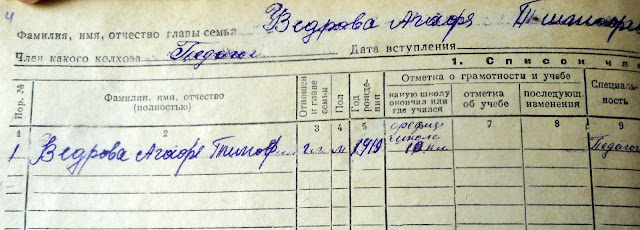 Фамилия, имя, отчество главы семьи Ведрова Агафья
Член какого колхоза Педагог Дата вступления
1. Список чле
Пор. №
Фамилия, имя, отчество
(полностью)
Отношен.
к главе
семьи
Пол
Год
рождения
Отметка о грамотности и учебе
какую школу
окончил или
где учился
отметка
об учебе
последующ.
изменения
Специаль-
ность
1 2 3 4 5 6 7 8 9
1 Ведрова Агафья Тимоф гл м 1919 школа 10 кл Педагог